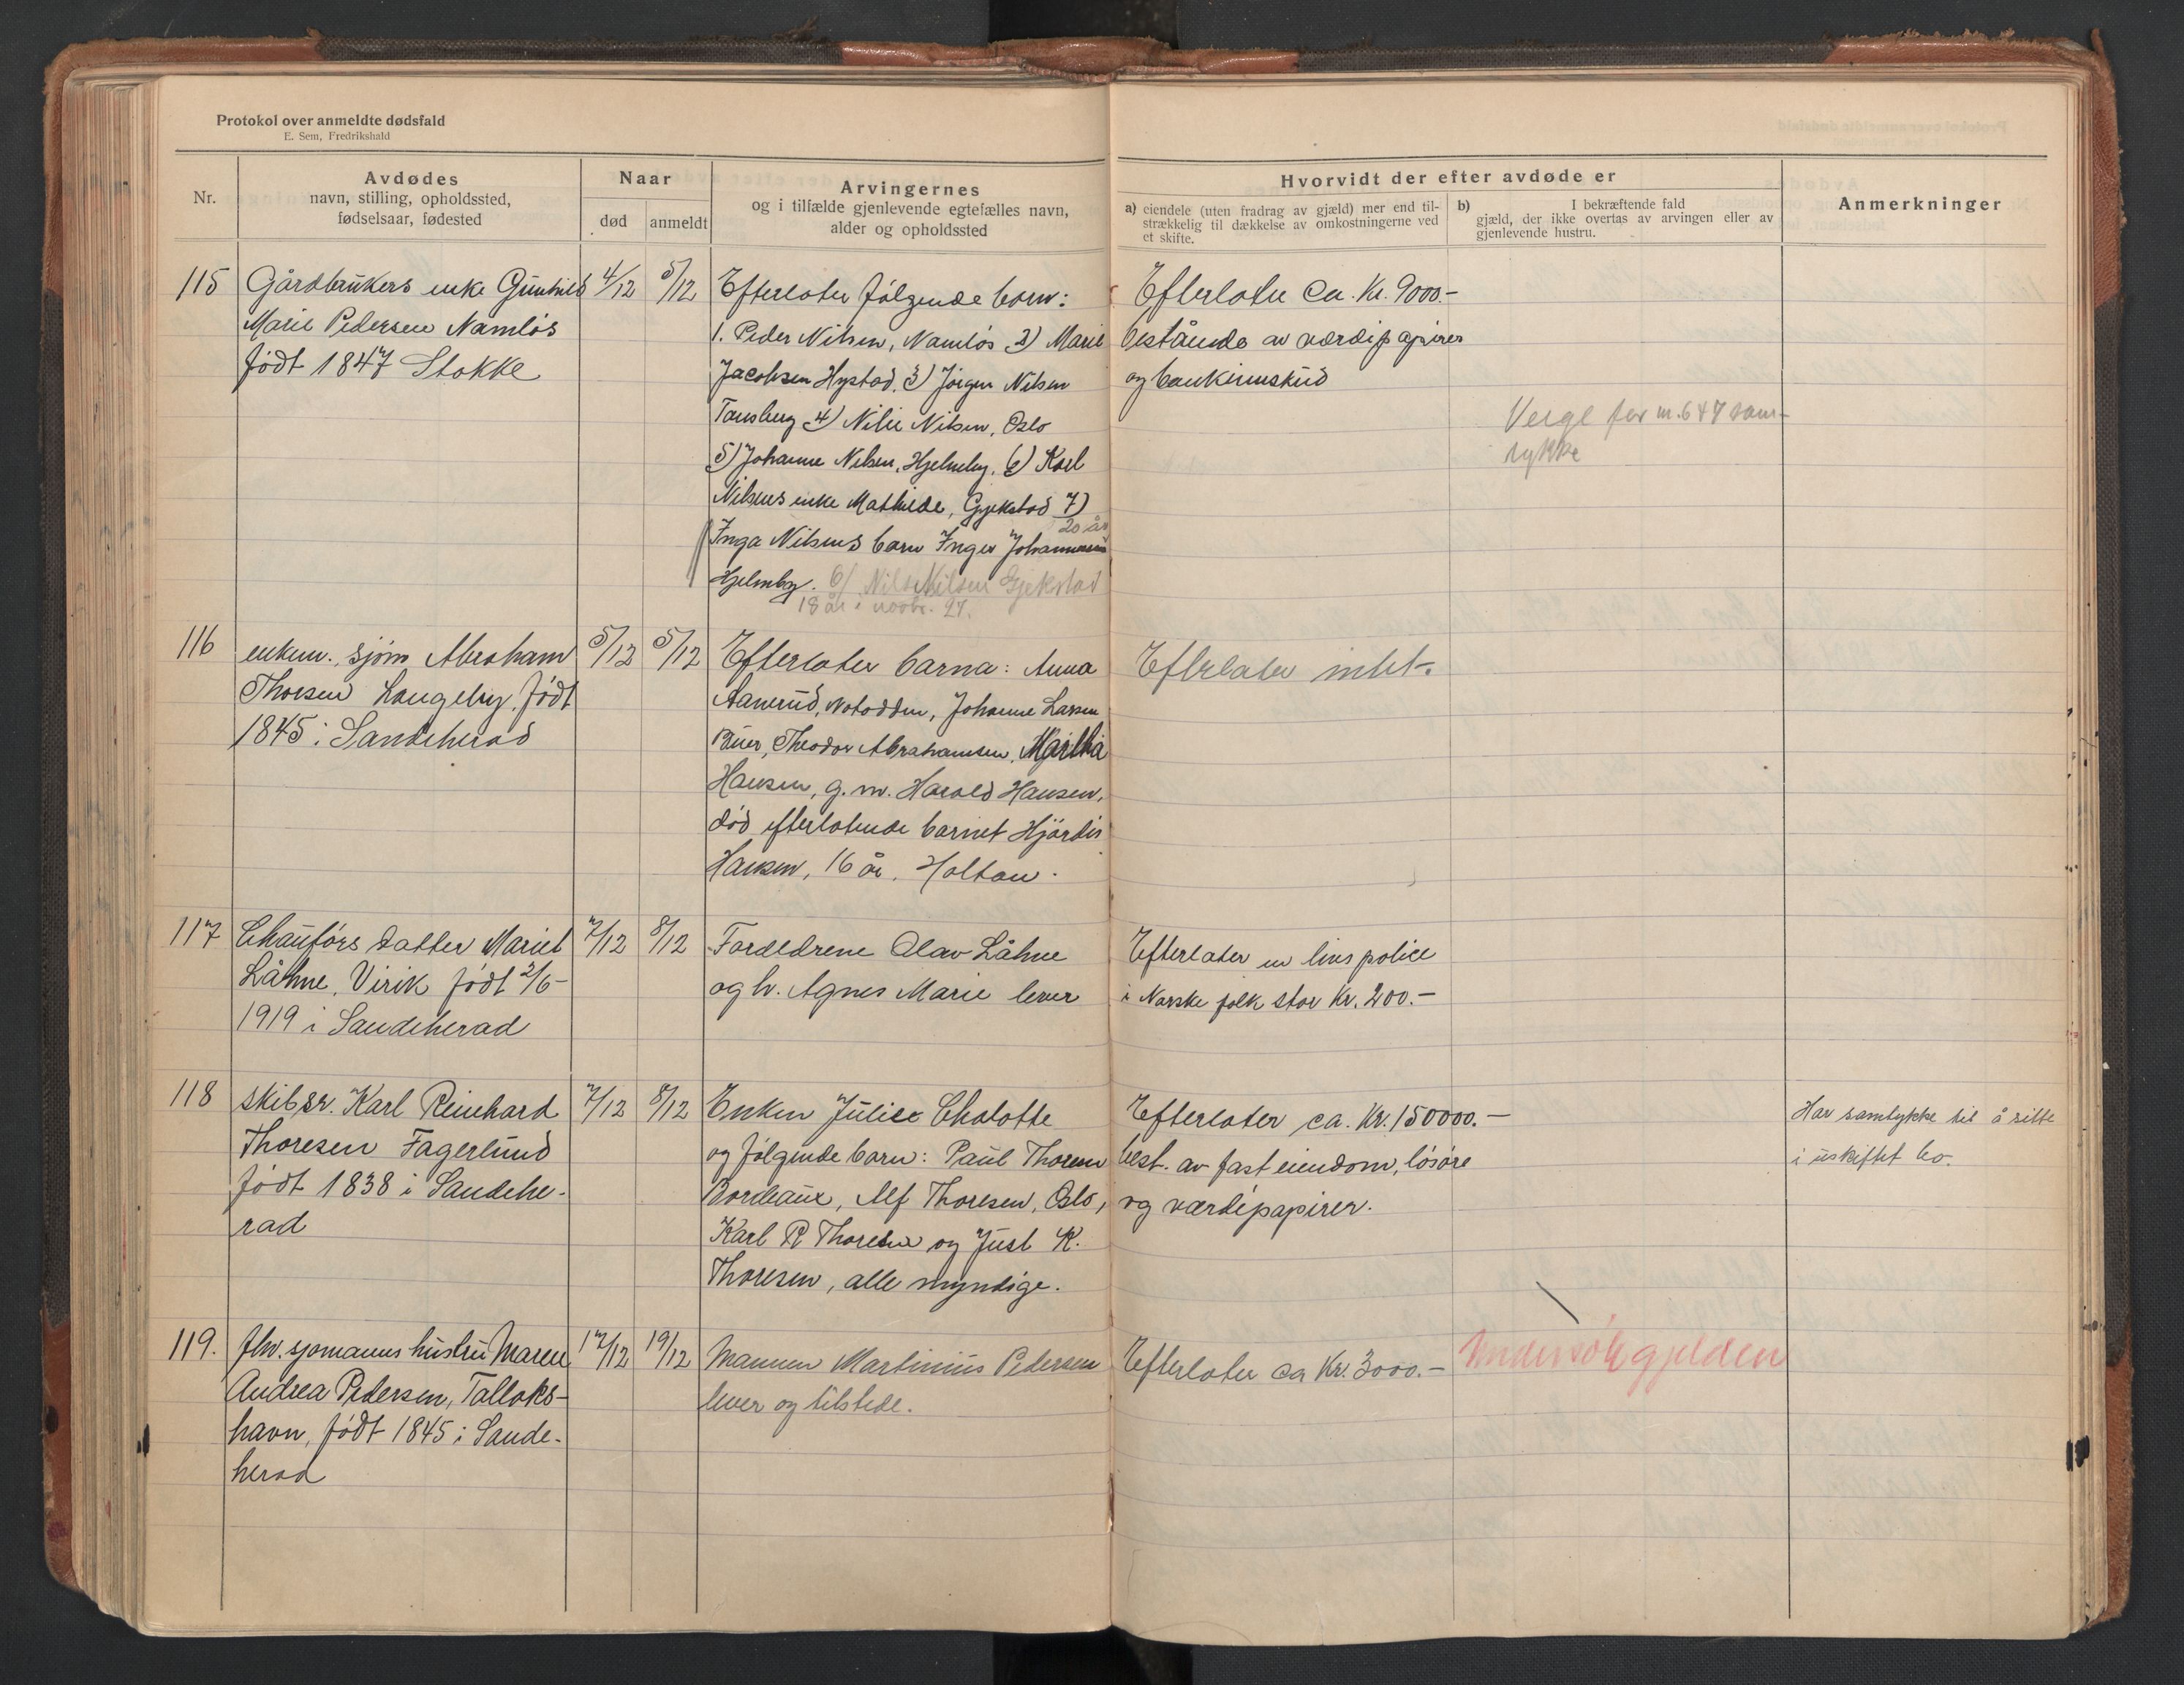 Protokol over anmeldte dødsfald
E. Sem, Fredrikshald
Nr.
Avdødes
navn, stilling, opholdssted,
fødselsaar, fødested
Naar
død
anmeldt
Arvingernes
og i tilfælde gjenlevende egtefælles navn,
alder og opholdssted
Hvorvidt der efter avdøde er
a) eiendele (uten fradrag av gjæld) mer end til-
strækkelig til dækkelse av omkostningerne ved
et skifte.
b) I bekræftende fald
gjæld, der ikke overtas av arvingen eller av
gjenlevende hustru.
Anmerkninger
115
Gårdbrukers enke Gunhild
Marie Pedersen Namløs
født 1847 Stokke
4/12
5/12
Efterlater følgende barn:
1. Peder Nilsen, Namløs 2) Marie
Jacobsen Hystad. 3) Jørgen Nilsen
Tønsberg 4) Nilie Nilsen, Oslo
5) Johanne Nilsen, Hjelmby. 6) Karl
Nilsens enke Mathilde, Gjekstad 7)
20 år
Inga Nilsens barn Inger Johannessen
Hjelmby. 6/ Nils Nilsen Gjekstad
18 år i novbr. 27.
Efterlater Ca. Kr. 9000.-
bestående av værdipapirer
og bankinnskud
Verge for m. 6 & 7 sam-
tykke
116
enkem. sjøm. Abraham
Thorsen Langeby. født
1845 i Sandeherad
5/12
5/12
Efterlater barna: Anna
Aanerud, Notodden, Johanne Larsen
Buer, Theodor Abrahamsen, Martha
Hansen, g. m. Harald Hansen,
død efterlatende barnet Hjørdis
Hansen, 16 år. Holtan.
Efterlater intet.
117
Chauførs datter Mariet
Låhne, Virik født 2/6-
1919 i Sandeherad
7/12
8/12
Foreldrene Olav Låhne
og h. Agnes Marie lever
Efterlater en livs police
i Norske folk stor Kr. 200.-
118
skibsr. Karl Reinhard
Thoresen Fagerlund
født 1838 i Sandehe-
rad
7/12
8/12
Enken Julie Chalotte
og følgende barn: Paul Thoresen
Bordeaux, Alf Thoresen, Oslo,
Karl R Thoresen og Just K.
Thoresen, alle myndige.
Efterlater ca. Kr. 150000.-
best. av fast eiendom, løsøre
og værdipapirer.
Har samtykke til å sitte
i uskiftet bo.
119.
fhv. sjømanns hustru Maren
Andrea Pedersen, Talloks-
havn, født 1845 i Sande-
herad
17/12
19/12
Mannen Martinius Pedersen
lever og tilstede.
Efterlater ca Kr. 3000.-
Undersøk gjelden